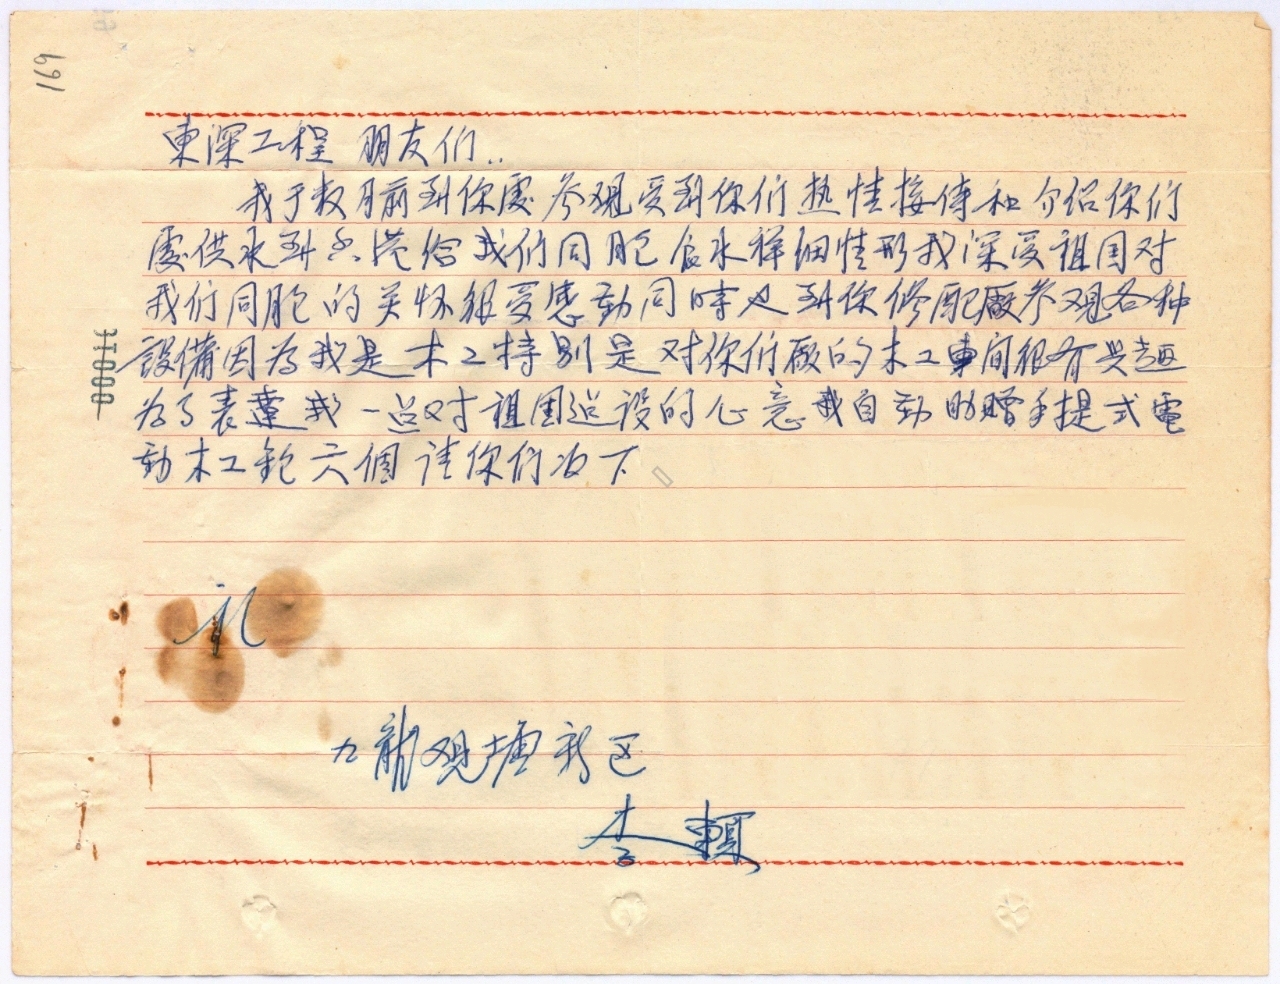 169
東深工程 朋友们..
我于数月前到你處参观受到你们热情接待和介绍你们
處供水到香港给我们同胞食水祥细情形我深受祖国对
我们同胞的关怀很受感動同時也到你修配廠参观各种
設備因為我是木工特别是对你们廠的木工車间很有兴趣
為了表達我一点对祖国边設的心意我自動助赠手提式電
動木工鉋六個请你们收下
礼
九龍观塘新区
李賴
000016